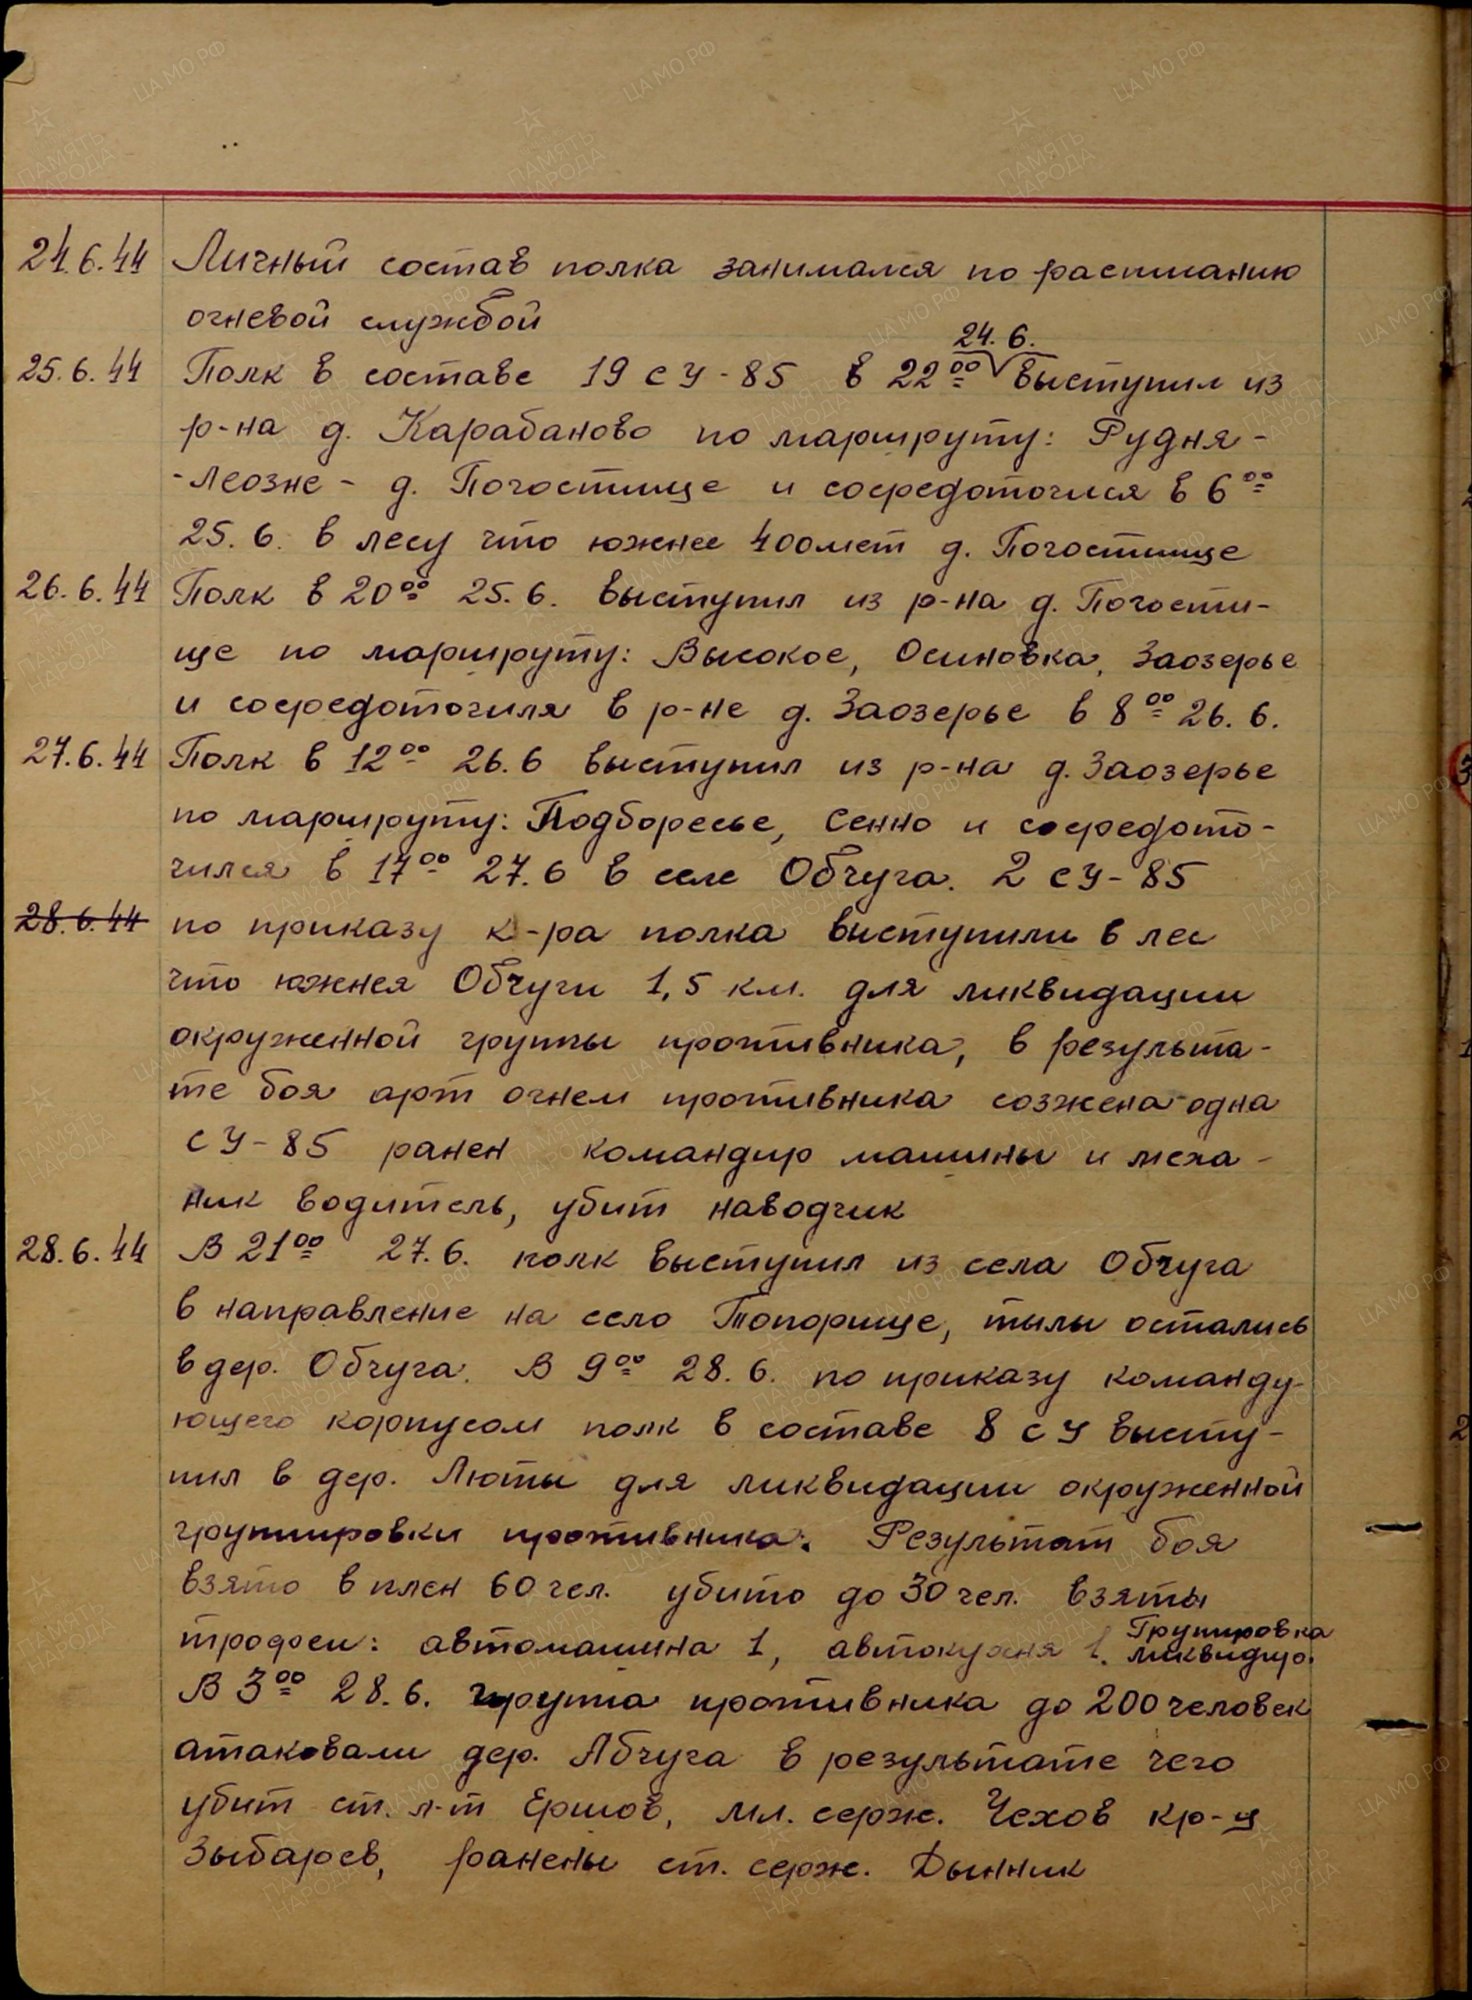 24.6.44 Личный состав полка занимался по расписанию
огневой службой
24.6.
25.6.44 Полк в составе 19 СУ-85 в 22⁰⁰ выступил из
р-на д. Карабаново по маршруту: Рудня-
-Леозне- д. Погостище и сосредоточился в 6⁰⁰
25.6. в лесу что южнее 400мет д. Погостище
26.6.44 Полк в 20⁰⁰ 25.6. выступил из р-на д. Погости-
ще по маршруту: Высокое, Осиновка, Заозерье
и сосредоточился в р-не д. Заозерье в 8⁰⁰ 26.6.
27.6.44 Полк в 12⁰⁰ 26.6 выступил из р-на д. Заозерье
по маршруту: Подборесье, Сенно и сосредото-
чился в 17⁰⁰ 27.6 в селе Обчуга. 2 СУ-85
28.6.44 по приказу к-ра полка выступили в лес
что южнея Обчуги 1,5 км. для ликвидации
окруженной группы противника, в результа-
те боя арт огнем противника созжена одна
СУ-85 ранен командир машины и меха-
ник водитель, убит наводчик
28.6.44 В 21⁰⁰ 27.6. полк выступил из села Обчуга
в направление на село Топорище, тылы остались
в дер. Обчуга. В 9⁰⁰ 28.6. по приказу команду-
ющего корпусом полк в составе 8 СУ высту-
пил в дер. Люты для ликвидации окруженной
группировки противника. Результат боя
взято в плен 60 чел. убито до 30 чел. взяты
трофеи: автомашина 1, автокухня 1. Групировка
ликвидир.
В 3⁰⁰ 28.6. группа противника до 200 человек
атаковали дер. Абчуга в результате чего
убит ст. л-т Ершов, мл. серж. Чехов кр-ц
Зыбарев, ранены ст. серж. Дынник